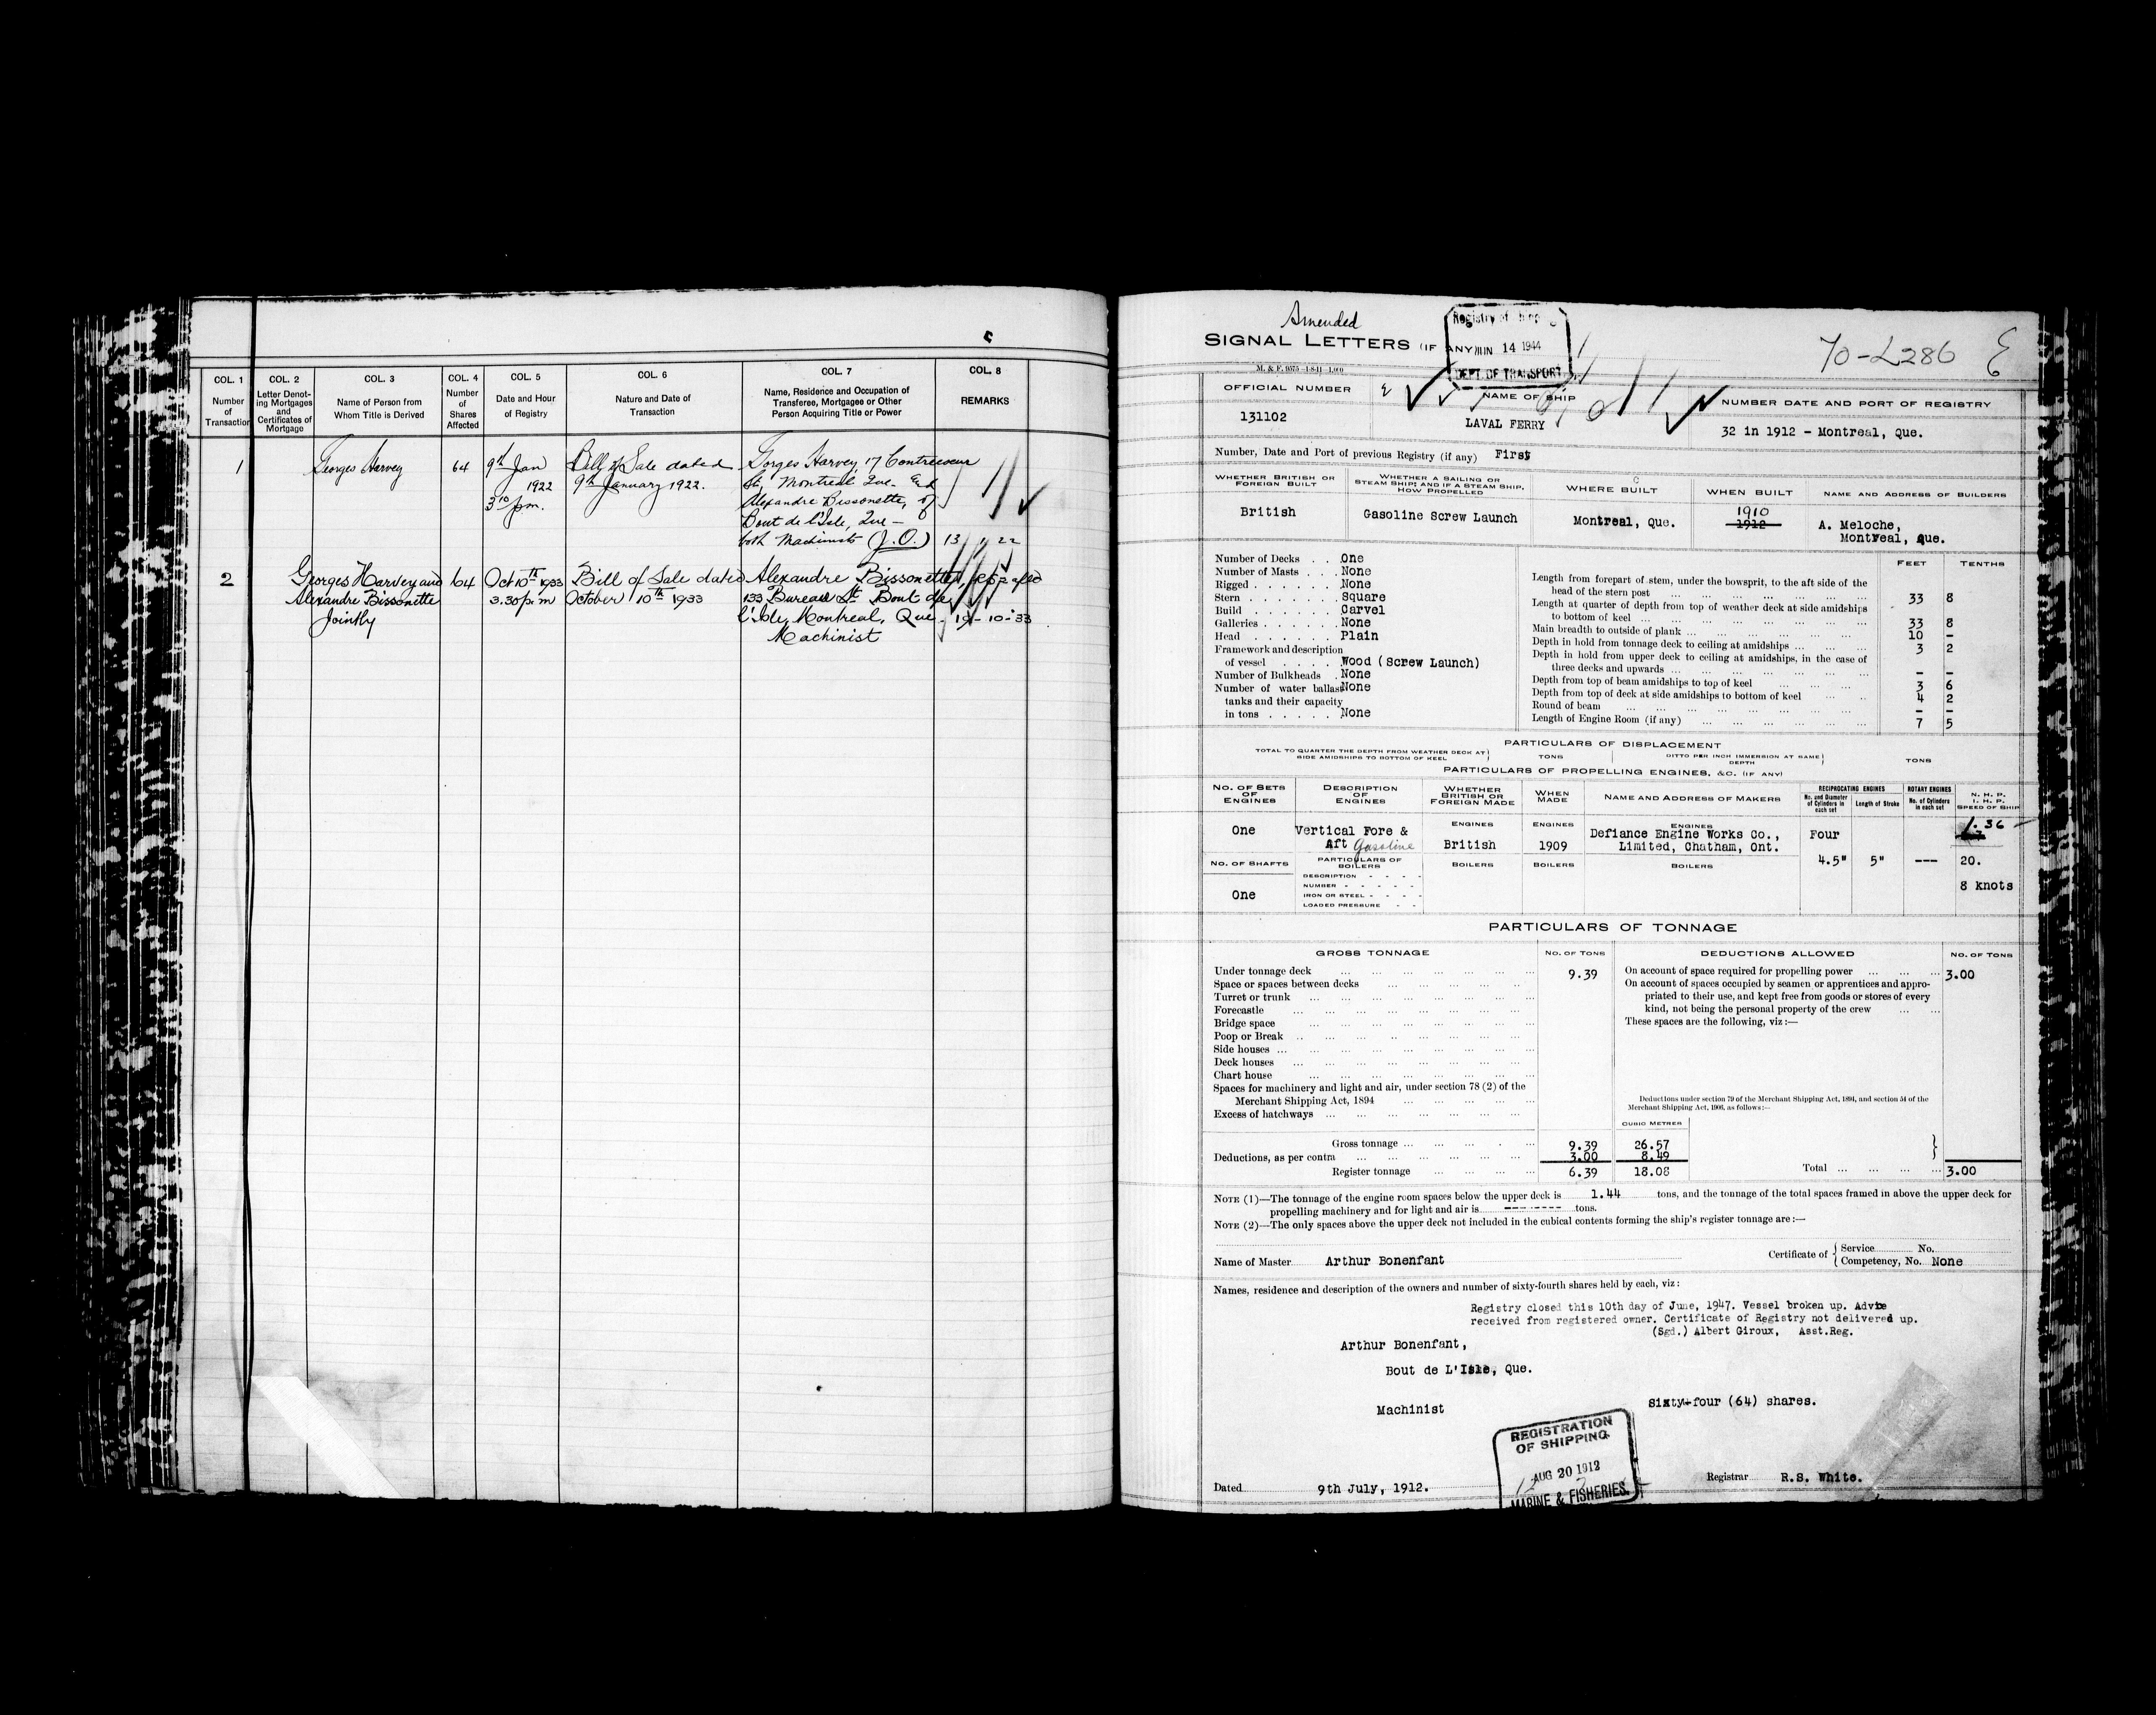 COL. 1 COL. 2 COL. 3 COL. 4 COL. 5 COL. 6 COL. 7 COL. 8
Number of Transaction
Letter Denoting Mortgages and Certificates of Mortgage
Name of Person from Whom Title is Derived
Number of Shares Affected
Date and Hour of Registry
Nature and Date of Transaction
Name, Residence and Occupation of Transferee, Mortgagee or Other Person Acquiring Title or Power
REMARKS
1 Georges Harvey 64 9th Jan Bill of Sale dated Gorges Harvey, 17 Contrecoeur
1922 9th January 1922. St, Montreal Que. and
3 10 p.m. Alexandre Bissonette, of
Bout de l'Isle, Que —
both Machinists (J.O.) 13 1 22
2 Georges Harvey and 64 Oct 10th 1933 Bill of Sale dated Alexandre Bissonette,
Alexandre Bissonette 3.30 p.m October 10th 1933 133 Bureau St Bout de
Jointly l'Isle, Montreal, Que. 19-10-33
Machinist
Amended
SIGNAL LETTERS (IF ANY)
Registry of
JUN 14 1944
DEPT. OF TRANSPORT
70-L286 E
M. & F. 9575—1-8-11—1,000
OFFICIAL NUMBER NAME OF SHIP NUMBER DATE AND PORT OF REGISTRY
131102 LAVAL FERRY 32 in 1912 - Montreal, Que.
Number, Date and Port of previous Registry (if any) First
WHETHER BRITISH OR FOREIGN BUILT
WHETHER A SAILING OR STEAM SHIP; AND IF A STEAM SHIP, HOW PROPELLED
WHERE BUILT WHEN BUILT NAME AND ADDRESS OF BUILDERS
1910
British Gasoline Screw Launch Montreal, Que. 1912 A. Meloche,
Montreal, Que.
FEET TENTHS
Number of Decks . . One
Number of Masts . . . None
Rigged . . . . . . None
Stern . . . . . . . Square
Build . . . . . . . Carvel
Galleries . . . . . . None
Head . . . . . . . Plain
Framework and description
of vessel . . . . Wood (Screw Launch)
Number of Bulkheads . None
Number of water ballast None
tanks and their capacity
in tons . . . . . None
Length from forepart of stem, under the bowsprit, to the aft side of the
head of the stern post 33 8
Length at quarter of depth from top of weather deck at side amidships
to bottom of keel 33 8
Main breadth to outside of plank 10 -
Depth in hold from tonnage deck to ceiling at amidships 3 2
Depth in hold from upper deck to ceiling at amidships, in the case of
three decks and upwards - -
Depth from top of beam amidships to top of keel 3 6
Depth from top of deck at side amidships to bottom of keel 4 2
Round of beam - -
Length of Engine Room (if any) 7 5
PARTICULARS OF DISPLACEMENT
TOTAL TO QUARTER THE DEPTH FROM WEATHER DECK AT SIDE AMIDSHIPS TO BOTTOM OF KEEL TONS DITTO PER INCH IMMERSION AT SAME DEPTH TONS
PARTICULARS OF PROPELLING ENGINES, &C. (IF ANY)
NO. OF SETS OF ENGINES
DESCRIPTION OF ENGINES
WHETHER BRITISH OR FOREIGN MADE
WHEN MADE
NAME AND ADDRESS OF MAKERS
RECIPROCATING ENGINES
No. and Diameter of Cylinders in each set
Length of Stroke
ROTARY ENGINES
No. of Cylinders in each set
N. H. P. I. H. P. SPEED OF SHIP
ENGINES ENGINES ENGINES
One Vertical Fore & Defiance Engine Works Co., Four 1.36
Aft Gasoline British 1909 Limited, Chatham, Ont.
NO. OF SHAFTS PARTICULARS OF BOILERS BOILERS BOILERS BOILERS 4.5" 5" --- 20.
DESCRIPTION
NUMBER 8 knots
One IRON OR STEEL
LOADED PRESSURE
PARTICULARS OF TONNAGE
GROSS TONNAGE NO. OF TONS DEDUCTIONS ALLOWED NO. OF TONS
Under tonnage deck 9.39
Space or spaces between decks
Turret or trunk
Forecastle
Bridge space
Poop or Break
Side houses
Deck houses
Chart house
Spaces for machinery and light and air, under section 78 (2) of the
Merchant Shipping Act, 1894
Excess of hatchways
On account of space required for propelling power 3.00
On account of spaces occupied by seamen or apprentices and appro-
priated to their use, and kept free from goods or stores of every
kind, not being the personal property of the crew
These spaces are the following, viz :—
Deductions under section 79 of the Merchant Shipping Act, 1894, and section 54 of the
Merchant Shipping Act, 1906, as follows :—
CUBIC METRES
Gross tonnage 9.39 26.57
Deductions, as per contra 3.00 8.49
Register tonnage 6.39 18.08 Total 3.00
NOTE (1)—The tonnage of the engine room spaces below the upper deck is 1.44 tons, and the tonnage of the total spaces framed in above the upper deck for
propelling machinery and for light and air is -------- tons.
NOTE (2)—The only spaces above the upper deck not included in the cubical contents forming the ship's register tonnage are :—
Name of Master Arthur Bonenfant
Certificate of Service No.
Competency, No. None
Names, residence and description of the owners and number of sixty-fourth shares held by each, viz :
Registry closed this 10th day of June, 1947. Vessel broken up. Advie
received from registered owner. Certificate of Registry not delivered up.
(Sgd.) Albert Giroux, Asst.Reg.
Arthur Bonenfant,
Bout de L'Isle, Que.
Machinist Sixty-four (64) shares.
REGISTRATION
OF SHIPPING
AUG 20 1912
MARINE & FISHERIES.
Dated 9th July, 1912. Registrar R.S. White.